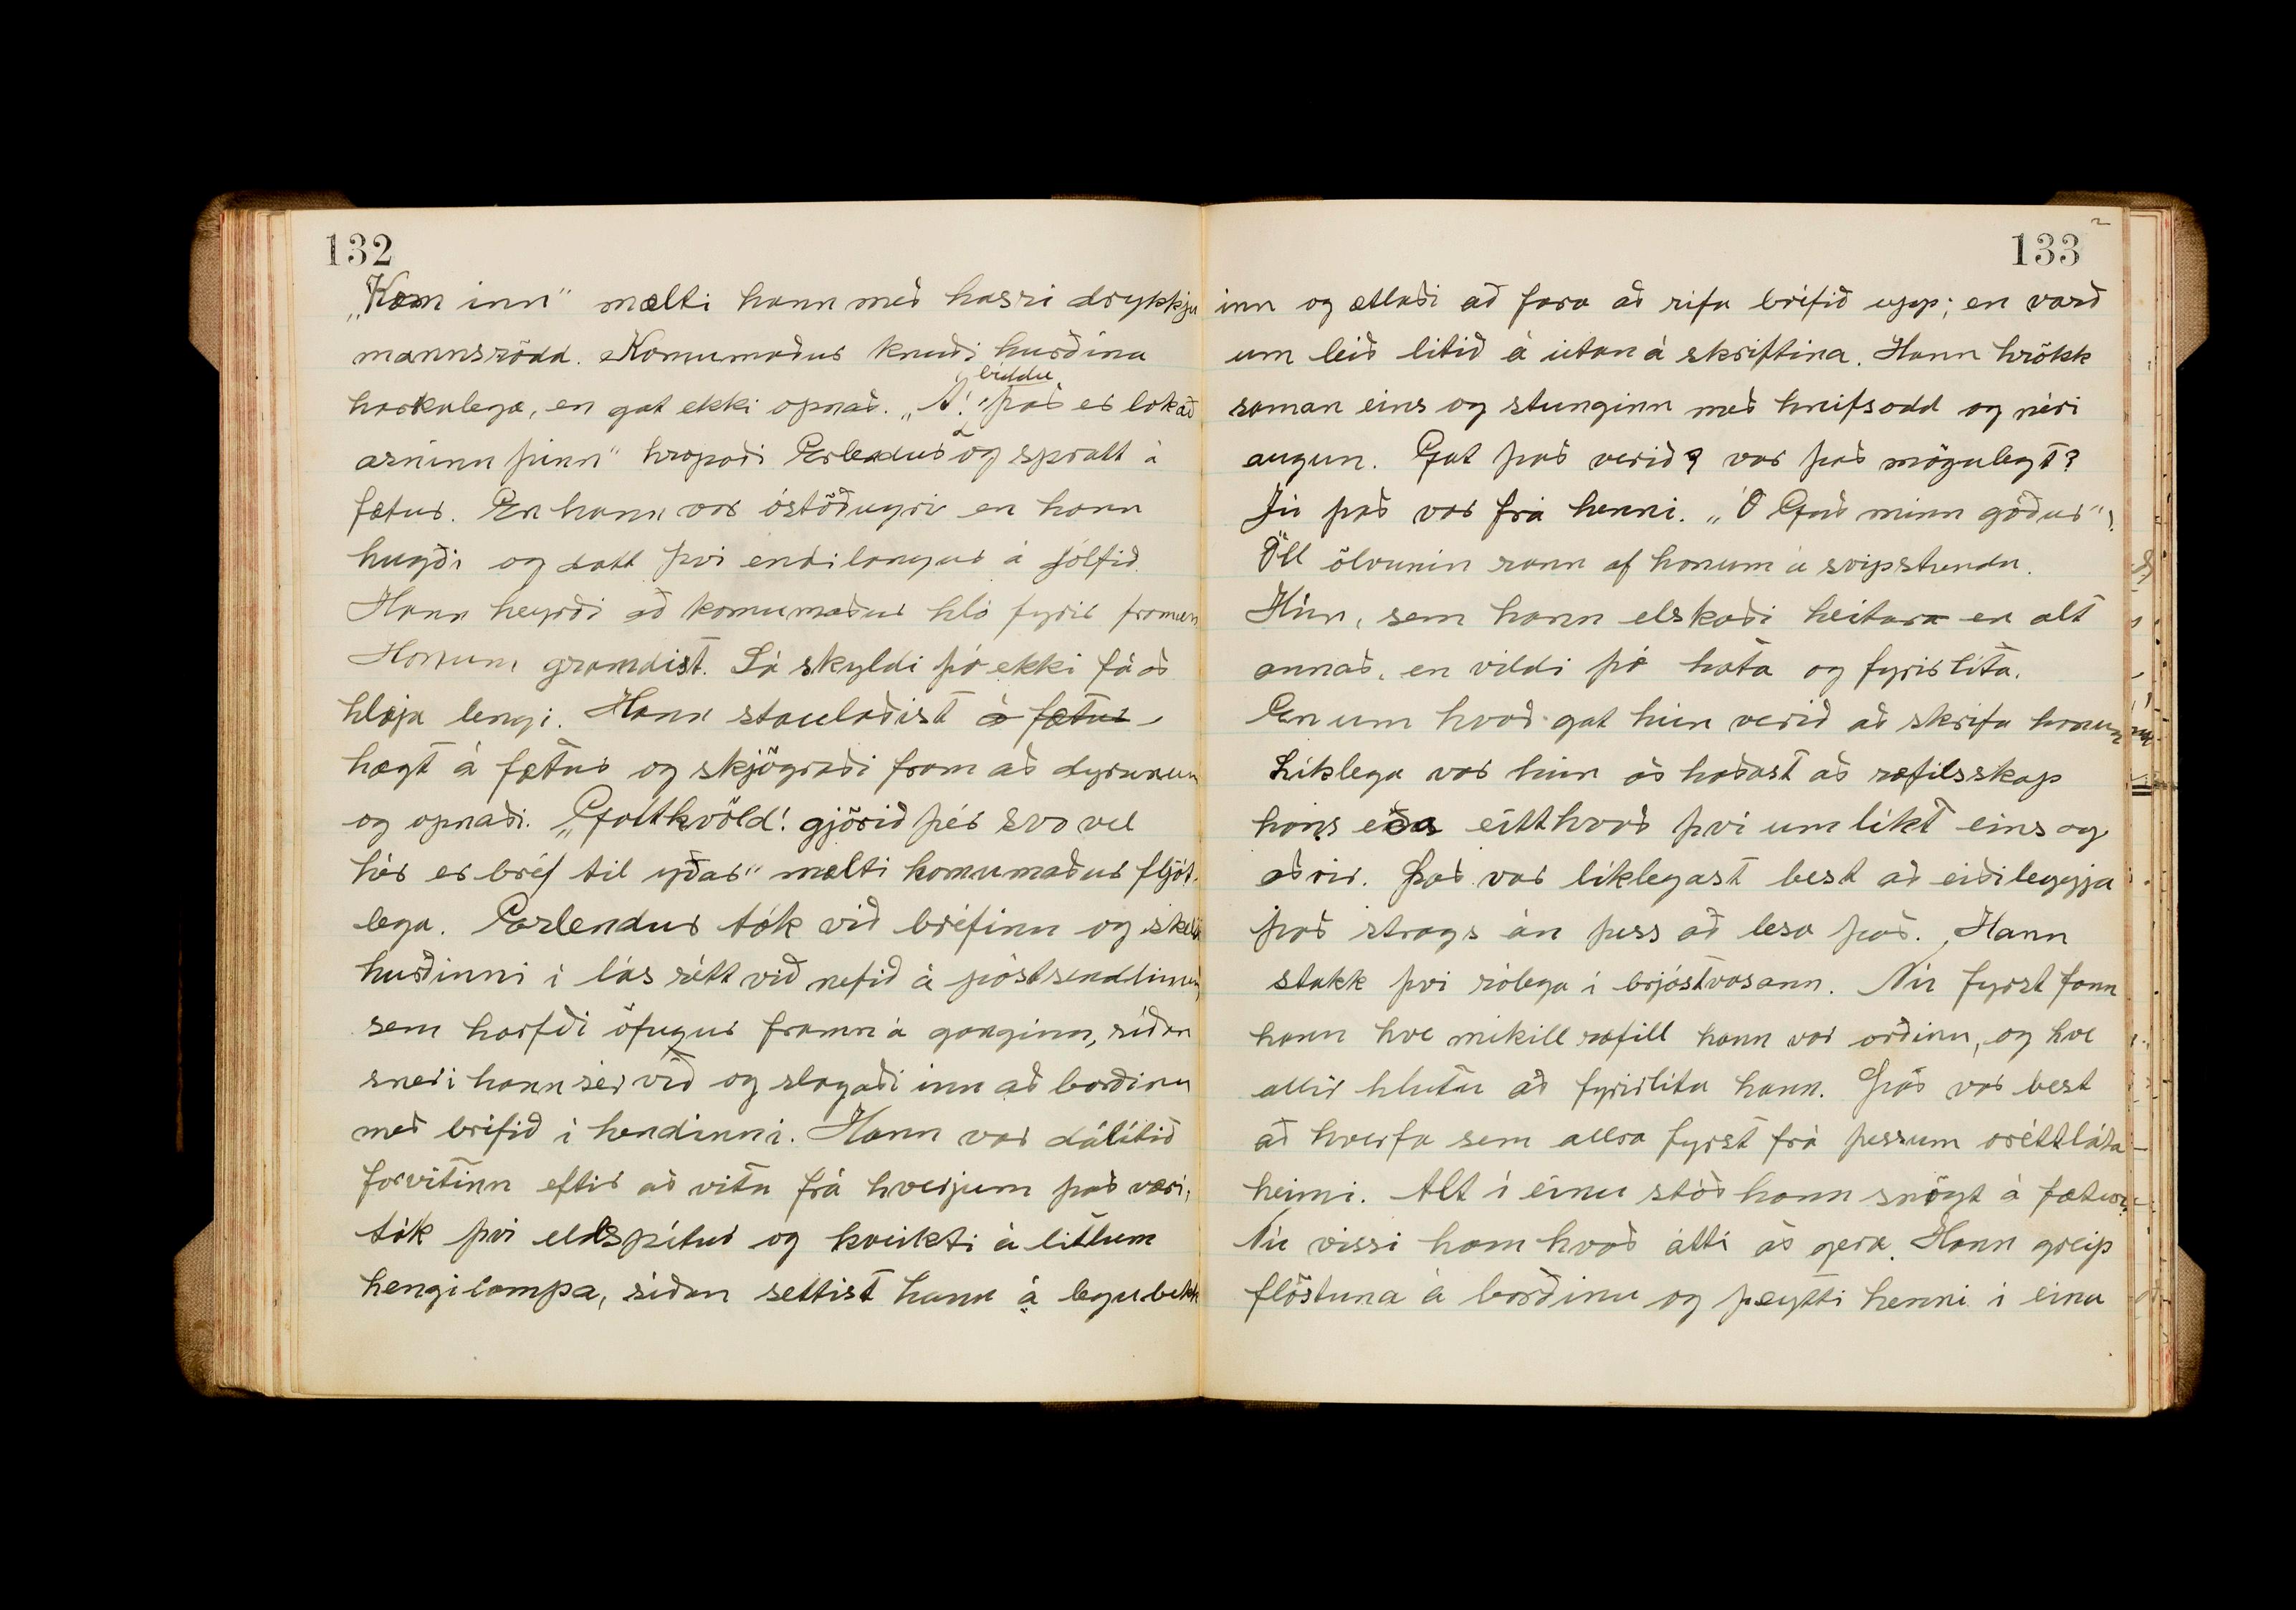 132
„Kom inn" mælti hann með hásri drykkju
mannsrödd. Komumaður knúði hurðina
harkalega, en gat ekki opnað. „A! bíddu það er lokað
asninn þinn" hrópaði Erlendur og spratt á
fætur. En hann var óstöðugri en hann
hugði og datt því endilangur á gólfið.
Hann heyrði að komumaður hló fyrir framan
Honum gramdist. Sá skyldi þó ekki fá að
hlæja lengi. Hann staulaðist á fætur
hægt á fætur og skjögraði fram að dyrunum
og opnaði. „Gottkvöld! gjörið þér svo vel
hér er bréf til yðar" mælti komumaður fljót-
lega. Erlendur tók við bréfinu og skellti
hurðinni í lás rétt við nefið á póstsendlinum
sem horfði öfugur framm á ganginn, síðan
sneri hann sér við og slagaði inn að borðinu
með bréfið í hendinni. Hann var dálítið
forvitinn eftir að vita frá hverjum það væri,
tók því eldspítur og kveikti á litlum
hengilampa, síðan settist hann á legubekk
133
inn og ætlaði að fara að rífa bréfið upp; en varð
um leið litið á utaná skriftina. Hann hrökk
saman eins og stunginn með hnífsodd og néri
augun. Gat það verið? var það mögulegt?
Jú það var frá henni. „Ó Guð minn góður"!
Öll ölvunin rann af honum á svipstundu.
Hún, sem hann elskaði heitara en alt
annað, en vildi þó hata og fyrirlíta.
En um hvað gat hún verið að skrifa honum
Líklega var hún að hæðast að ræfilsskap
hans eða eitthvað því um líkt eins og
aðrir. Það var líklegast best að eiðileggja
það strags án þess að lesa það. Hann
stakk því rólega í brjóstvasann. Nú fyrst fann
hann hve mikill ræfill hann var orðinn, og hve
allir hlutu að fyrirlíta hann. Það var best
að hverfa sem allra fyrst frá þessum óréttláta
heimi. Alt í einu stóð hann snögt á fætur.
Nú vissi hann hvað átti að gera. Hann greip
flöskuna á borðinu og þeytti henni í einu